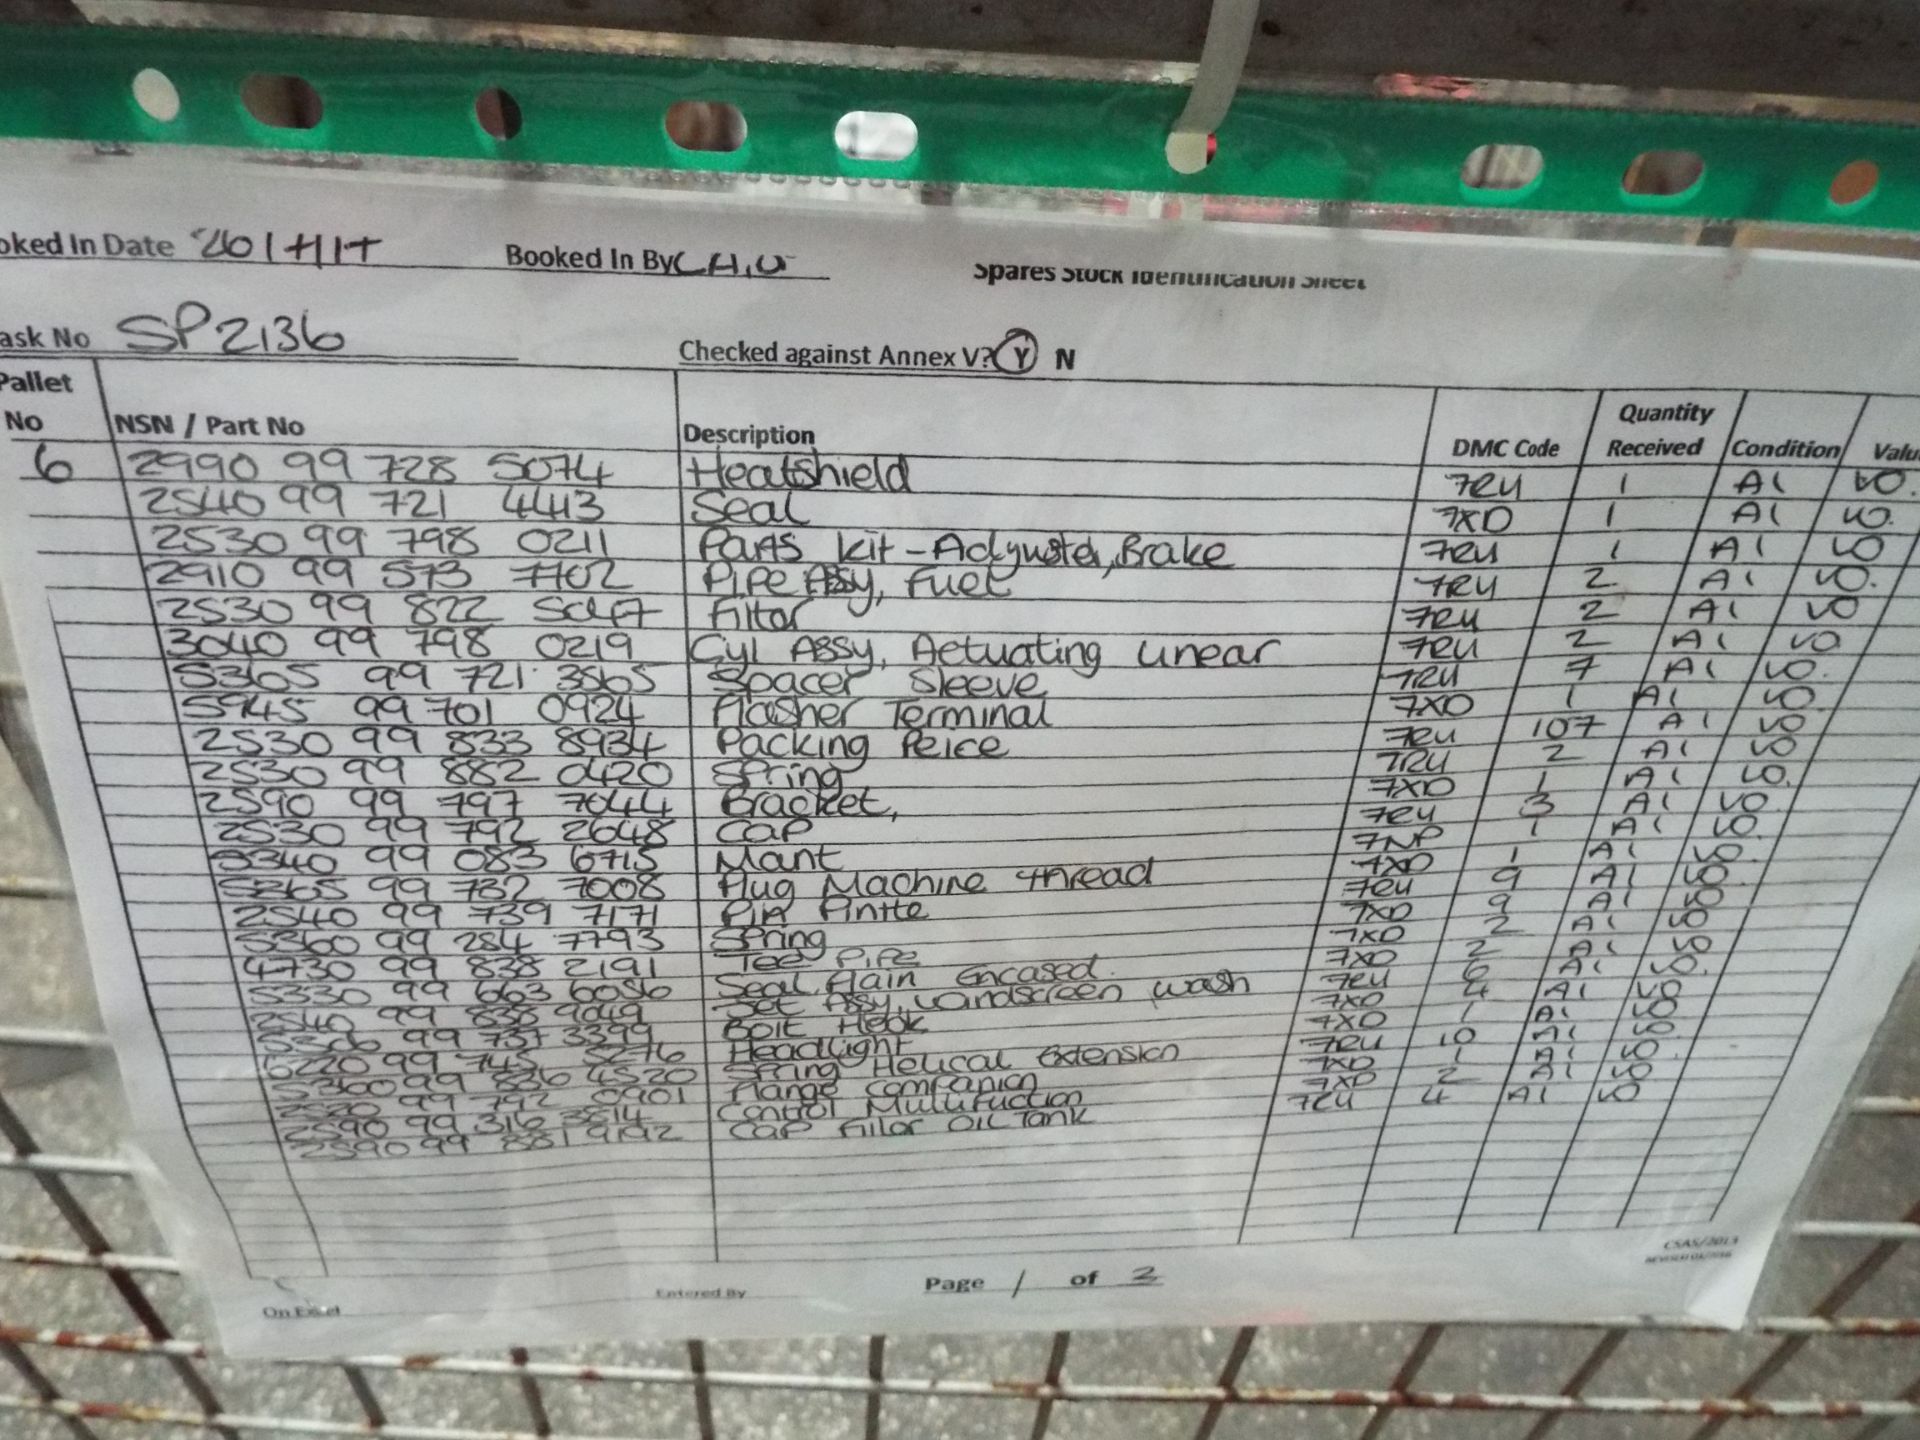 oked In Date 20/4/17 Booked In By Spares Stock Identification Sheet
ask No SP2136 Checked against Annex V? Y N
Pallet No NSN / Part No Description DMC Code Quantity Received Condition Valu
6 2990 99 728 5074 Heatshield 7RU 1 A1 VO.
2540 99 721 4413 Seal 7XD 1 A1 VO.
2530 99 798 0211 Parts Kit - Adjuster, Brake 7RU 1 A1 VO
2910 99 573 7702 Pipe Assy, Fuel 7RU 2 A1 VO.
2530 99 822 Filter 7RU 2 A1 VO
3040 99 798 0219 Cyl Assy, Actuating Linear 7RU 2 A1 VO
5365 99 721 3565 Spacer Sleeve 7RU 7 A1 VO.
5945 99 701 0924 Flasher Terminal 7XD 1 A1 VO.
2530 99 833 8934 Packing Peice 7RU 107 A1 VO
2530 99 882 0420 Spring 7RU 2 A1 VO
2590 99 797 7044 Bracket, 7XD 1 A1 VO.
2530 99 792 2648 Cap 7RU 3 A1 VO
5340 99 083 6715 Mant 7NP 1 A1 VO.
5365 99 732 7008 Plug Machine thread 7XD 1 A1 VO
2540 99 739 7171 Pin Pintle 7RU 9 A1 VO.
5360 99 284 7793 Spring 7XD 9 A1 VO
4730 99 838 2191 Tee Pipe 7XD 2 A1 VO
5330 99 663 6056 Seal, Plain Encased. 7XD 2 A1 VO
2540 99 838 9049 Set Assy, Windscreen wash 7RU 6 A1 VO.
5306 99 737 3399 Bolt Hook 7XD 4 A1 VO
6220 99 745 5276 Headlight 7XD 1 A1 VO
5360 99 836 4520 Spring Helical Extension 7RU 10 A1 VO
99 792 0901 Flange Companion 7XD 1 A1 VO
2590 99 316 3814 Control Multifuction 7XD 2 A1 VO
2590 99 881 9192 Cap Fillor Oil Tank 7RU 4 A1 VO
CSAS/2013
On Excel Entered By Page 1 of 2